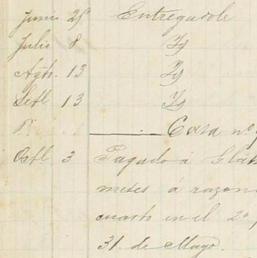 Junio 25 Entregadole
Julio 8 Id
Agto. 13 Id
Setb. 13 Id
Casa nº
Octb. 3 Pagado á
meses á razon
cuarto en el 2º,
31 de Mayo.